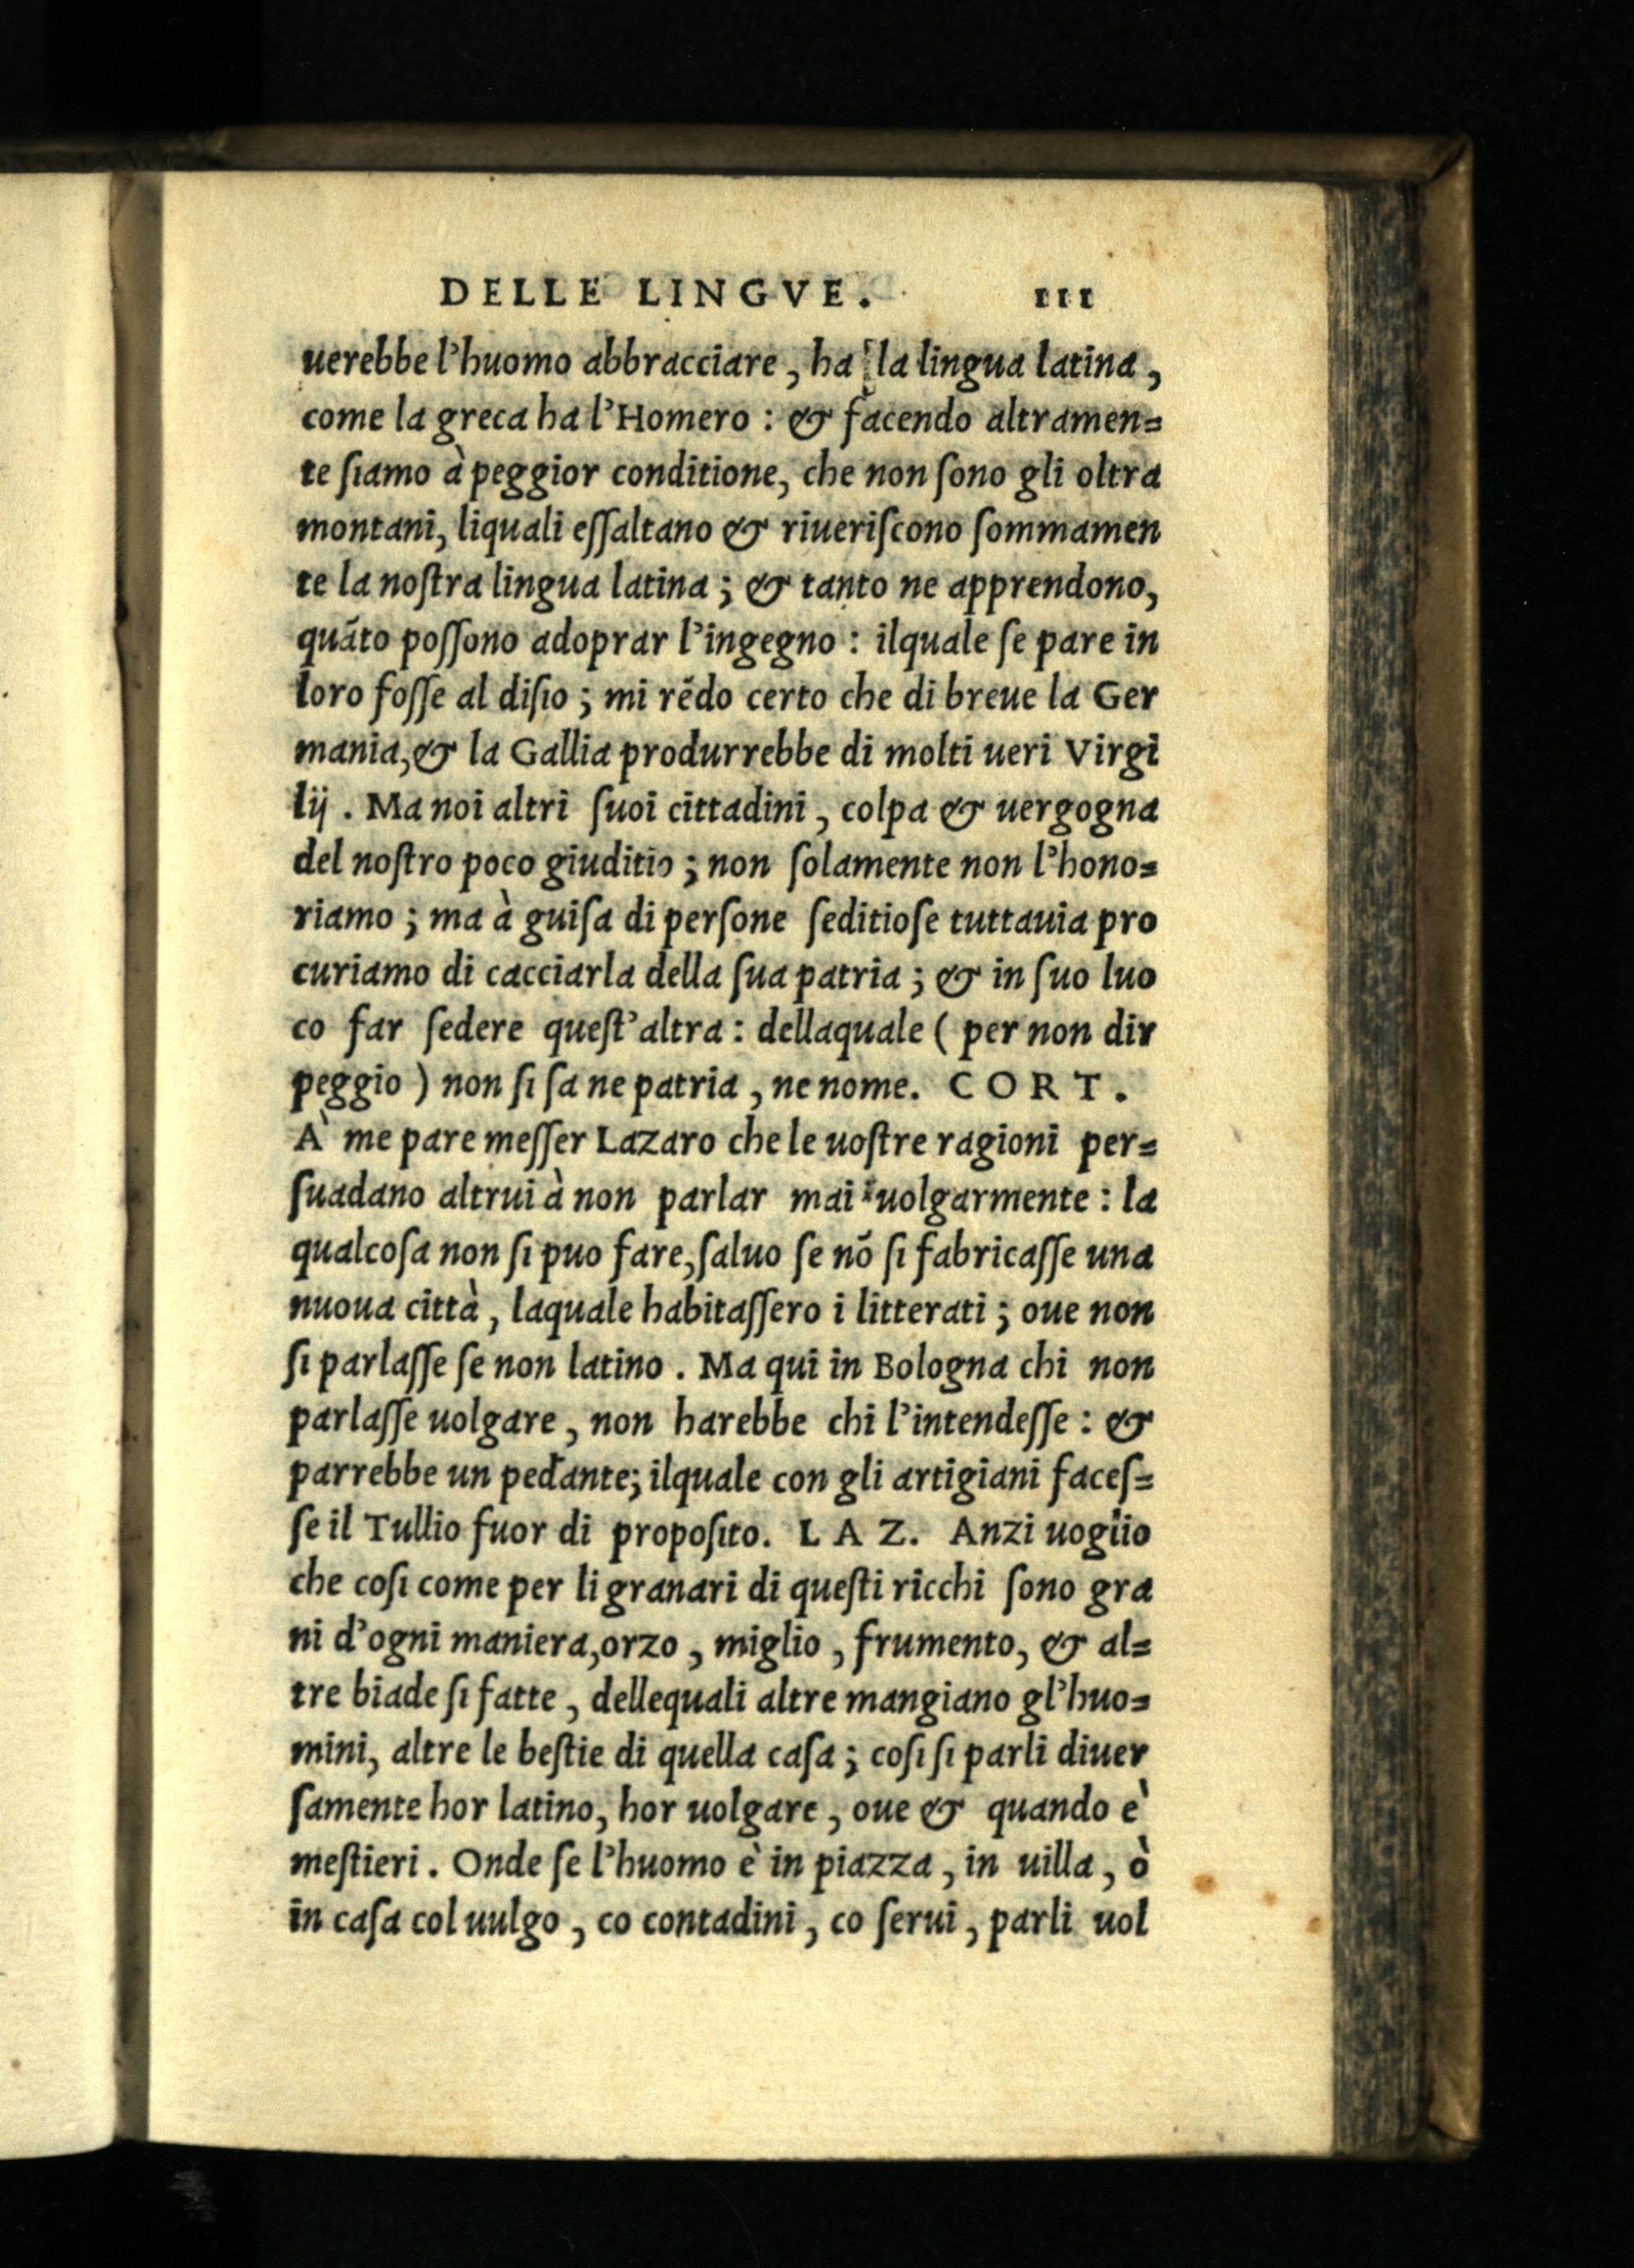 DELLE LINGVE. III
uerebbe l'huomo abbracciare, ha la lingua latina,
come la greca ha l'Homero: & facendo altramen=
te ſiamo à peggior conditione, che non ſono gli oltra
montani, liquali eſſaltano & riueriſcono ſommamen
te la noſtra lingua latina; & tanto ne apprendono,
quãto poſſono adoprar l'ingegno: ilquale ſe pare in
loro foſſe al diſio; mi rẽdo certo che di breue la Ger
mania, & la Gallia produrrebbe di molti ueri Virgi
lij. Ma noi altri ſuoi cittadini, colpa & uergogna
del noſtro poco giuditio; non ſolamente non l'hono=
riamo; ma à guiſa di perſone ſeditioſe tuttauia pro
curiamo di cacciarla della ſua patria; & in ſuo luo
co far ſedere queſt'altra: dellaquale (per non dir
peggio) non ſi ſa ne patria, ne nome. CORT.
À me pare meſſer Lazaro che le uoſtre ragioni per=
ſuadano altrui à non parlar mai uolgarmente: la
qualcoſa non ſi puo fare, ſaluo ſe nõ ſi fabricaſſe una
nuoua città, laquale habitaſſero i litterati; oue non
ſi parlaſſe ſe non latino. Ma qui in Bologna chi non
parlaſſe uolgare, non harebbe chi l'intendeſſe: &
parrebbe un pedante; ilquale con gli artigiani faceſ=
ſe il Tullio fuor di propoſito. LAZ. Anzi uoglio
che coſi come per li granari di queſti ricchi ſono gra
ni d'ogni maniera, orzo, miglio, frumento, & al=
tre biade ſi fatte, dellequali altre mangiano gl'huo=
mini, altre le beſtie di quella caſa; coſi ſi parli diuer
ſamente hor latino, hor uolgare, oue & quando è
meſtieri. Onde ſe l'huomo è in piazza, in uilla, ò
in caſa col uulgo, co contadini, co ſerui, parli uol